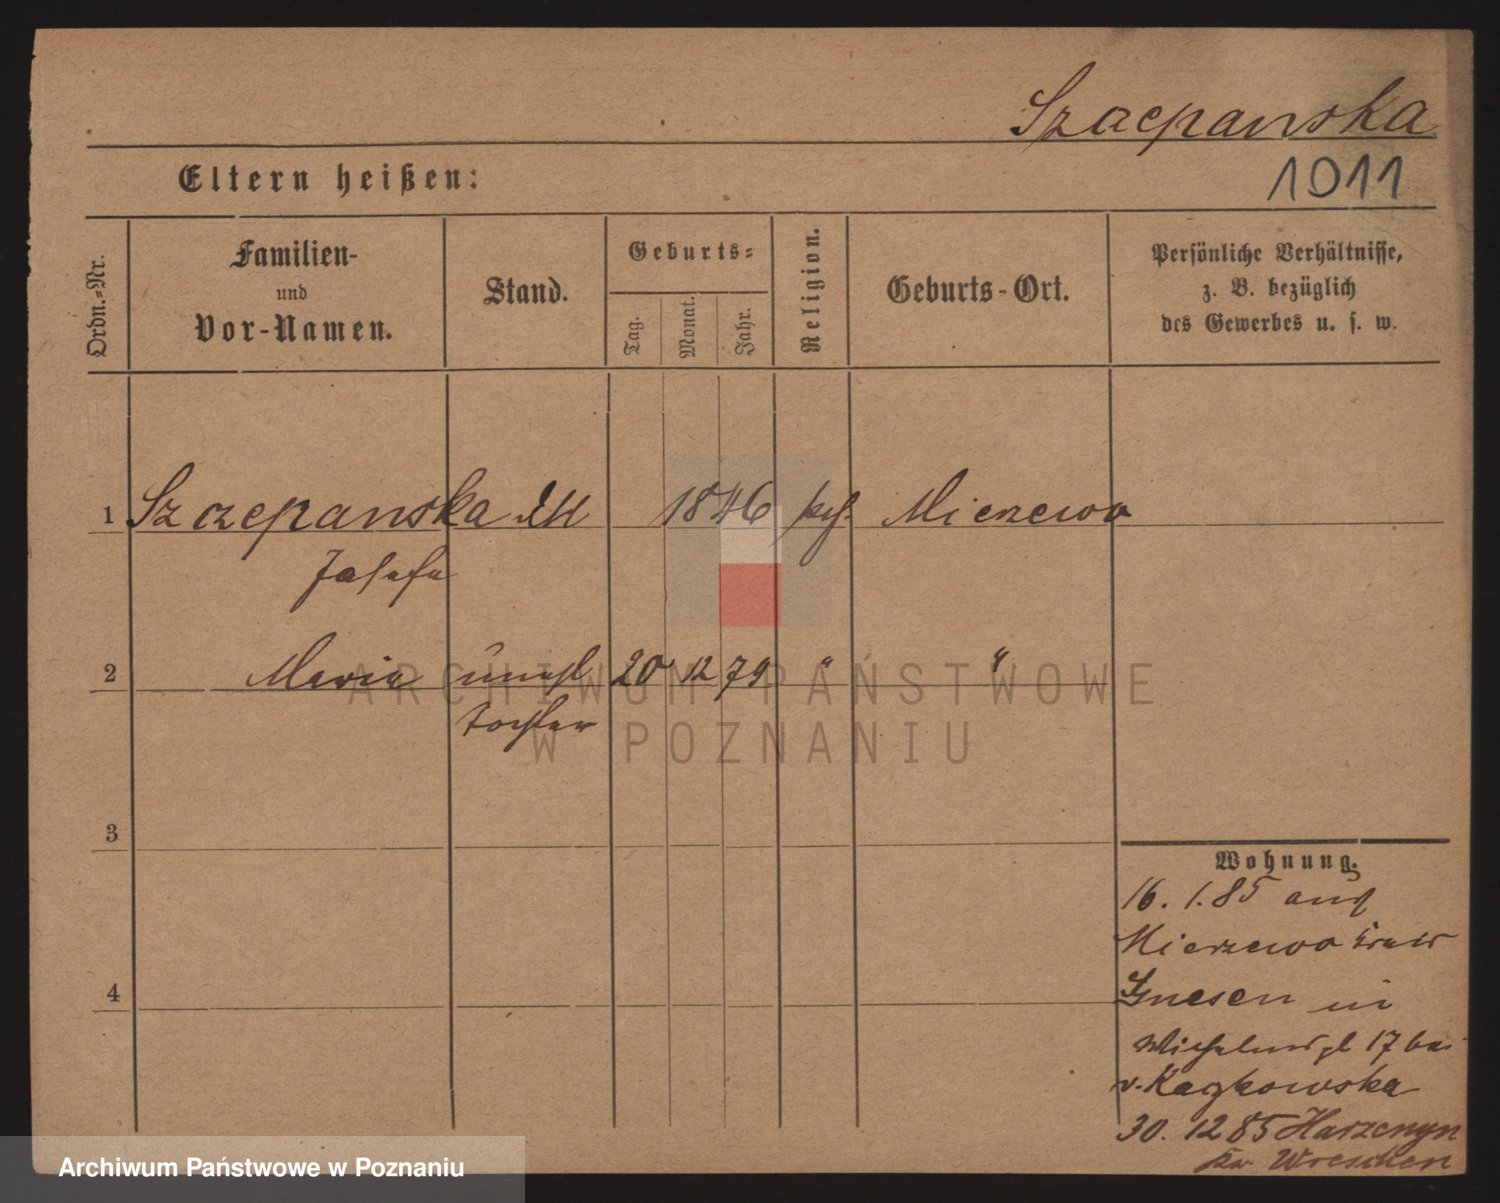 Szczepanska
1011
Eltern heißen:
Ordn.-Nr.
Familien-
und
Vor-Namen.
Stand.
Geburts-
Tag.
Monat.
Jahr.
Religion.
Geburts-Ort.
Persönliche Verhältnisse,
z. B. bezüglich
des Gewerbes u. s. w.
1 Szczepanska 1846 kath. Mierzewo
Josefa
2 Maria unehl 20 12 79 " "
Tochter
3
4
Wohnung.
16. 1. 85 aus
Mierzewo Kreis
Gnesen in
Wilhelmspl 17 bei
v. Kaczkowska
30. 12 85
Kr. Wreschen
ARCHIWUM PAŃSTWOWE
W POZNANIU
Archiwum Państwowe w Poznaniu